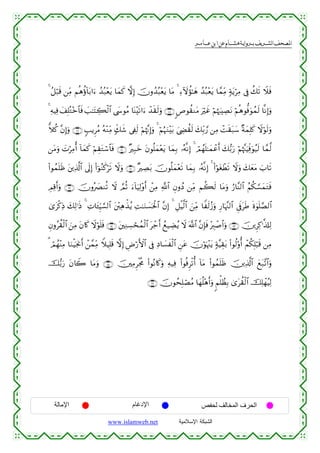 المصحف الشريف برواية هشام عن ابن عامر
فَلَا تَكُ فِي مِرْيَةٍ مِّمَّا يَعْبُدُ هَٰؤُلَاءِ مَا يَعْبُدُونَ إِلَّا كَمَا يَعْبُدُ ءَابَاؤُهُم مِّن قَبْلُ
وَإِنَّا لَمُوَفُّوهُمْ نَصِيبَهُمْ غَيْرَ مَنقُوصٍ وَلَقَدْ ءَاتَيْنَا مُوسَى ٱلْكِتَٰبَ فَٱخْتُلِفَ فِيهِ
وَلَوْلَا كَلِمَةٌ سَبَقَتْ مِن رَّبِّكَ لَقُضِيَ بَيْنَهُمْ وَإِنَّهُمْ لَفِي شَكٍّ مِّنْهُ مُرِيبٍ وَإِنَّ كُلًّا
لَّمَّا لَيُوَفِّيَنَّهُمْ رَبُّكَ أَعْمَٰلَهُمْ إِنَّهُ بِمَا يَعْمَلُونَ خَبِيرٌ فَٱسْتَقِمْ كَمَا أُمِرْتَ وَمَن
تَابَ مَعَكَ وَلَا تَطْغَوْا إِنَّهُ بِمَا تَعْمَلُونَ بَصِيرٌ وَلَا تَرْكَنُوا إِلَى ٱلَّذِينَ ظَلَمُوا
فَتَمَسَّكُمُ ٱلنَّارُ وَمَا لَكُم مِّن دُونِ ٱللَّهِ مِنْ أَوْلِيَاءَ ثُمَّ لَا تُنصَرُونَ وَأَقِمِ
ٱلصَّلَوٰةَ طَرَفَيِ ٱلنَّهَارِ وَزُلَفًا مِّنَ ٱلَّيْلِ إِنَّ ٱلْحَسَنَٰتِ يُذْهِبْنَ ٱلسَّيِّـَٔاتِ ذَٰلِكَ ذِكْرَىٰ
لِلذَّٰكِرِينَ وَٱصْبِرْ فَإِنَّ ٱللَّهَ لَا يُضِيعُ أَجْرَ ٱلْمُحْسِنِينَ فَلَوْلَا كَانَ مِنَ ٱلْقُرُونِ
مِن قَبْلِكُمْ أُولُوا بَقِيَّةٍ يَنْهَوْنَ عَنِ ٱلْفَسَادِ فِي ٱلْأَرْضِ إِلَّا قَلِيلًا مِّمَّنْ أَنجَيْنَا مِنْهُمْ
وَٱتَّبَعَ ٱلَّذِينَ ظَلَمُوا مَا أُتْرِفُوا فِيهِ وَكَانُوا مُجْرِمِينَ وَمَا كَانَ رَبُّكَ
لِيُهْلِكَ ٱلْقُرَىٰ بِظُلْمٍ وَأَهْلُهَا مُصْلِحُونَ
الحرف المخالف لحفص الإدغام الإمالة
الشبكة الإسلامية www.islamweb.net